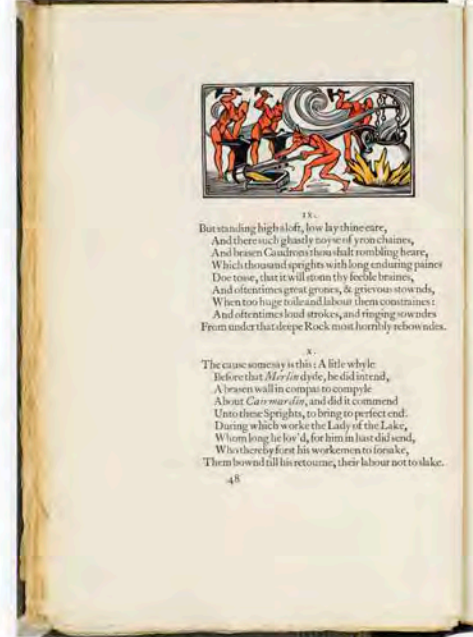 IX.
But standing high aloft, low lay thine eare,
And there such ghastly noyse of yron chaines,
And brasen Caudrons thou shalt rombling heare,
Which thousand sprights with long enduring paines
Doe tosse, that it will stonn thy feeble braines,
And oftentimes great grones, & grievous stownds,
When too huge toile and labour them constraines:
And oftentimes loud strokes, and ringing sowndes
From under that deepe Rock most horribly rebowndes.
X.
The cause some say is this: A litle whyle
Before that Merlin dyde, he did intend,
A brasen wall in compas to compyle
About Cairmardin, and did it commend
Unto these Sprights, to bring to perfect end.
During which worke the Lady of the Lake,
Whom long he lov'd, for him in hast did send,
Who thereby forst his workemen to forsake,
Them bownd till his retourne, their labour not to slake.
48